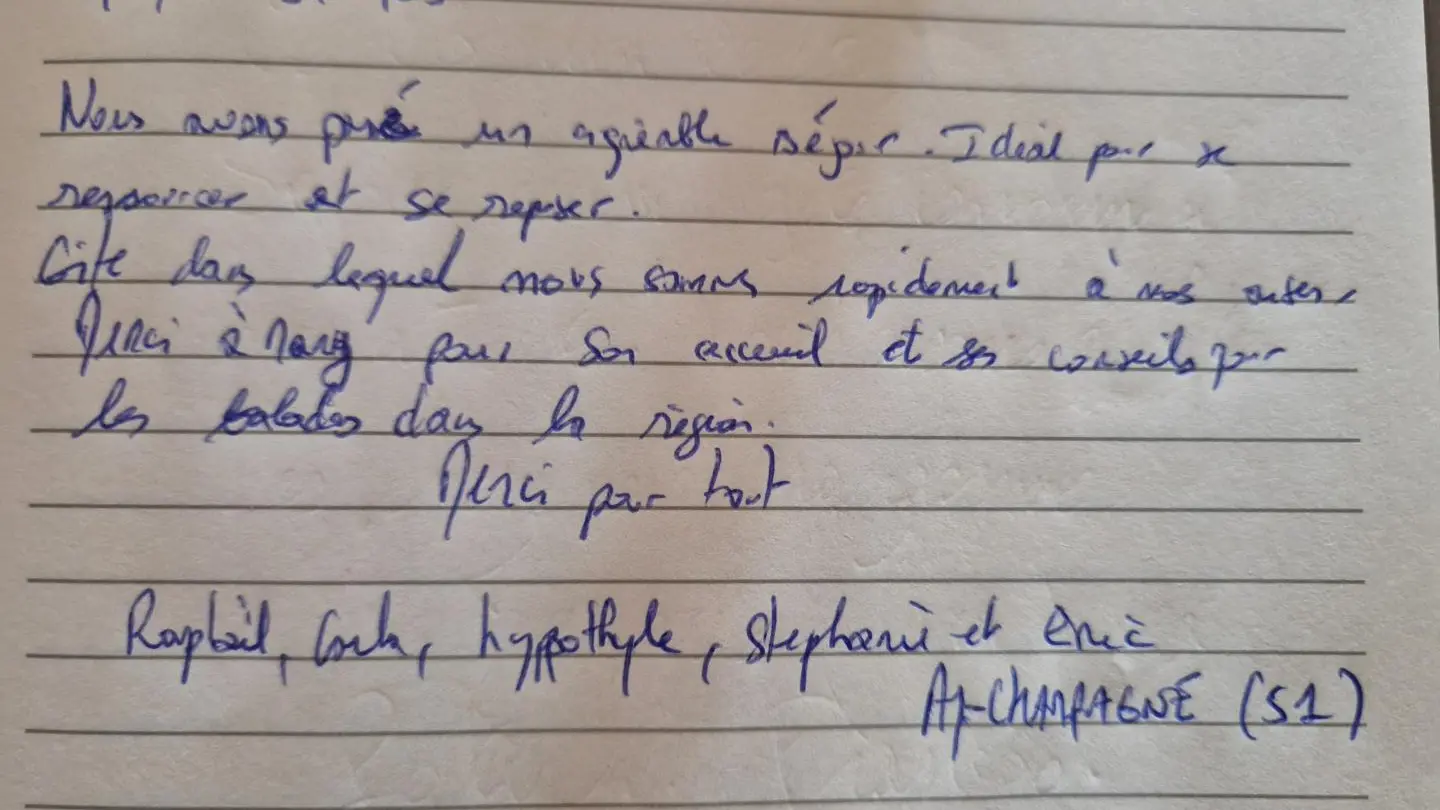 Nous avons passé un agréable séjour. Idéal pour se
ressourcer et se reposer.
Gite dans lequel nous sommes rapidement à nos aises.
Merci à pour son acceuil et ses conseils pour
les balades dans la région.
Merci pour tout
Raphaël, hyppothyle, Stephanie et Eric
Aÿ-CHAMPAGNE (51)